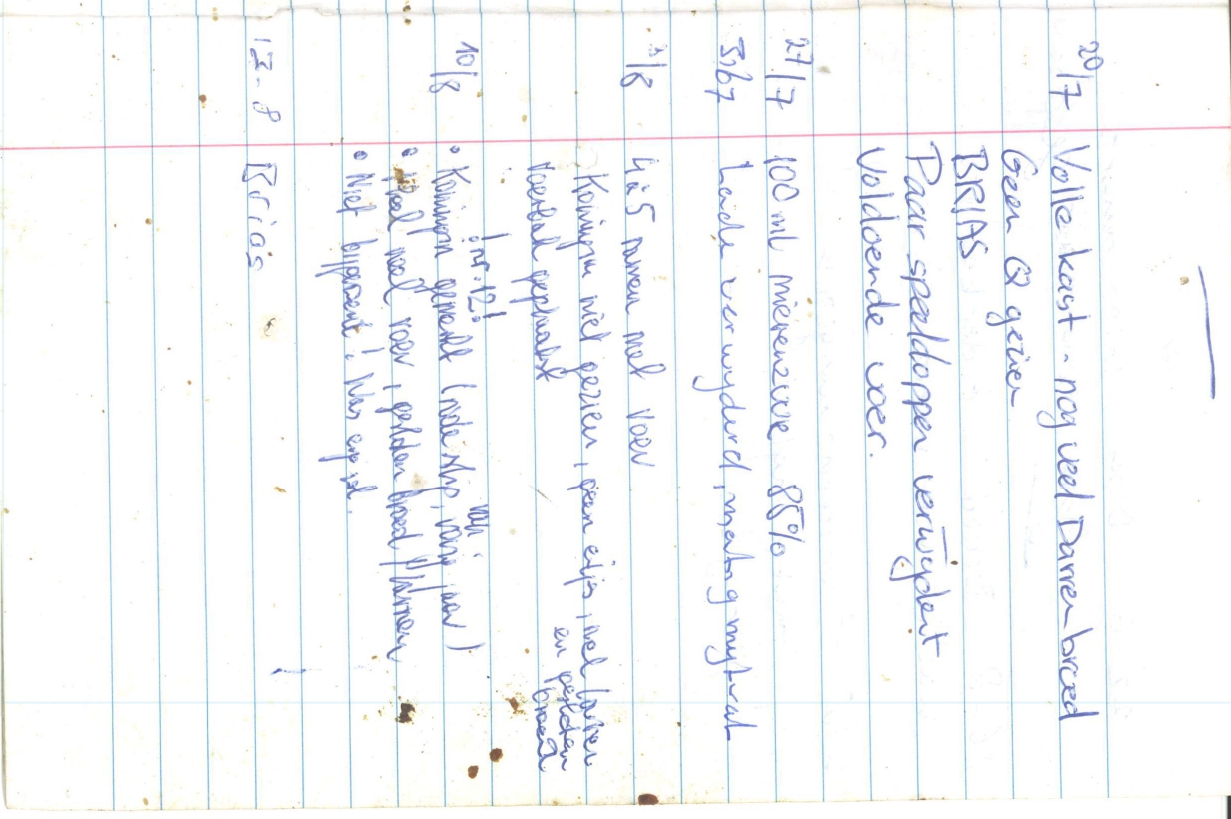 20/7 Volle kast - nog veel Darrenbroed
Geen Q gezien
BRIAS
Paar speeldoppen verwijdert
Voldoende voer.
27/7 100 ml mierenzuur 85%
31/7 Lade verwijderd, matig mytval
/8 4 à 5 ramen met voer
Koningin niet gezien, geen eijs, wel larven
en gesloten
broed
Voerbak geplaatst
! nr. 12!
10/8 • Koningin gemerkt (rode stip,
• Heel veel voer, gesloten broed
• Niet bijgevoerd! Was
13-8 Brias